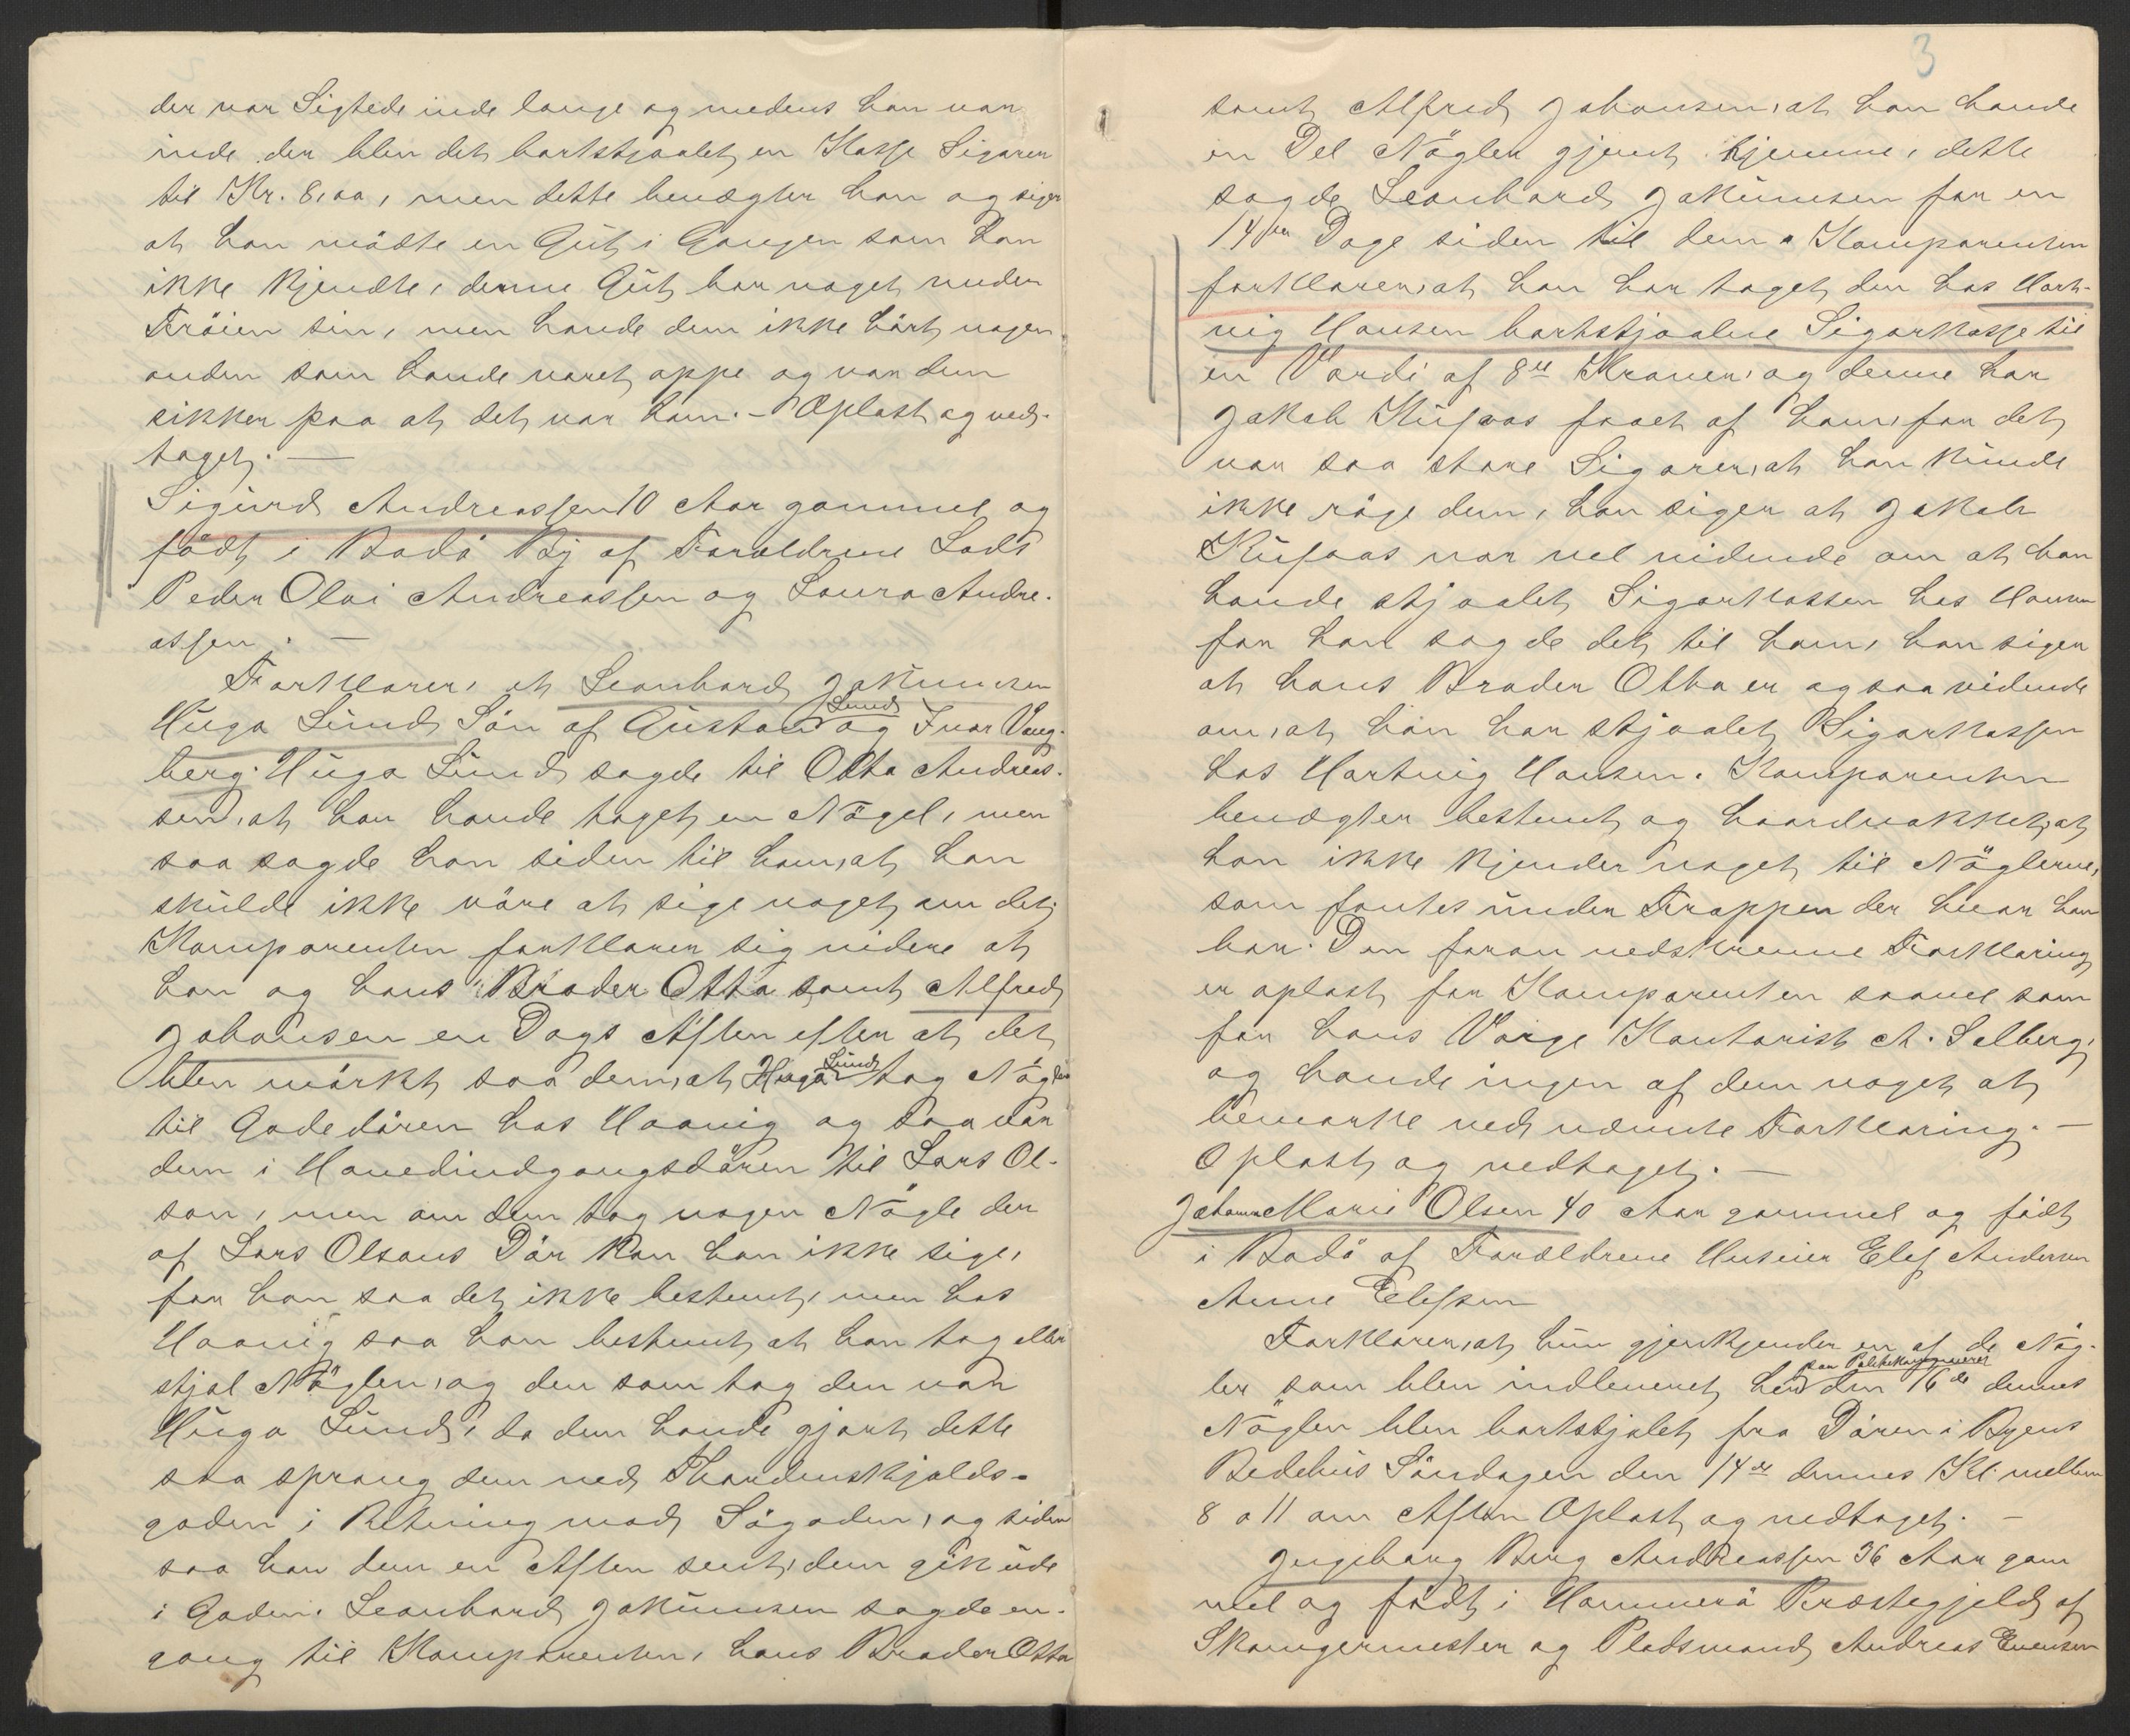 der var Sigtede inde længe og medens han var
inde der blev det bortstjaalet en Kasse Sigarer
til Kr. 8,00, men dette benægter han og siger
at han mødte en Gut i Gangen som han
ikke kjendte, denne Gut bar noget under
Trøien sin, men havde dem ikke hørt nogen
anden som havde været oppe og var dem
sikker paa at det var ham. – Oplæst og ved-
taget. —
Sigurd Andreassen 10 Aar gammel og
født i Bodø By af Forældrene Lods
Peder Olai Andreassen og Laura Andre-
assen. —
Forklarer, at Leonhard Jakumsen
Hugo Lund Søn af Gustav Lund og Ivar Vang-
berg. Hugo Lund sagde til Otto Andreas-
sen, at han havde taget en Nøgel, men
saa sagde han siden til ham, at han
skulde ikke være at sige noget om det,
Komparenten forklarer sig videre at
han og hans Broder Otto samt Alfred
Johansen en Dags Aften efter at det
blev mørkt saa dem, at Hugo Lund tog Nøglen
til Gadedøren hos Haavig og saa var
dem i Hovedindgangsdøren til Lars Ol-
son, men om dem tog nogen Nøgle der
af Lars Olsons Dør kan han ikke sige,
for han saa det ikke bestemt, men hos
Haavig saa han bestemt at han tog eller
stjal Nøglen, og den som tog den var
Hugo Lund, da dem havde gjort dette
saa sprang dem ned Thordenskjolds-
gaden i Retning mod Søgaden, og siden
saa han dem en Aften sent, dem gik ude
i Gaden. Leonhard Jakumsen sagde en-
gang til Komparenten, hans Broder Otto
3
samt Alfred Johansen, at han havde
en Del Nøgler gjemt hjemme, dette
sagde Leonhard Jakumsen for en
14ten Dage siden til dem. Komparenten
forklarer, at han har taget den hos Hart-
vig Hansen bortstjaalne Sigarkasse til
en Værdi af 8te Kroner, og denne har
Jakob Kufaas faaet af ham, for det
var saa store Sigarer, at han kunde
ikke røge dem, han siger at Jakob
Kufaas var vel vidende om at han
havde stjaalet Sigarkassen hos Hansen
for han sagde det til ham, han siger
at hans Broder Otto er ogsaa vidende
om, at han har stjaalet Sigarkassen
hos Hartvig Hansen. Komparenten
benægter bestemt og haardnakket, at
han ikke kjender noget til Nøglerne,
som fantes under Trappen der hvor han
bor. Den foran nedskrevne Forklaring
er oplæst for Komparenten saavel som
for hans Værge Kontorist A. Selberg,
og havde ingen af dem noget at
bemærke ved nævnte Forklaring. —
Oplæst og vedtaget. —
Johanne Marie Olsen 40 Aar gammel og født
i Bodø af Forældrene Huseier Elef Andersen
Anne Elefsen
Forklarer, at hun gjenkjender en af de Nøg-
ler som blev indleveret her paa Politikammeret den 16de dennes
Nøglen blev bortstjalet fra Døren i Byens
Bedehus Søndagen den 14de dennes Kl. mellem
8 a 11 om Aften Oplæst og vedtaget. —
Ingeborg Berg Andreassen 36 Aar gam
mel og født i Hammerø Præstegjeld af
Skomagermester og Pladsmand Andreas Evensen